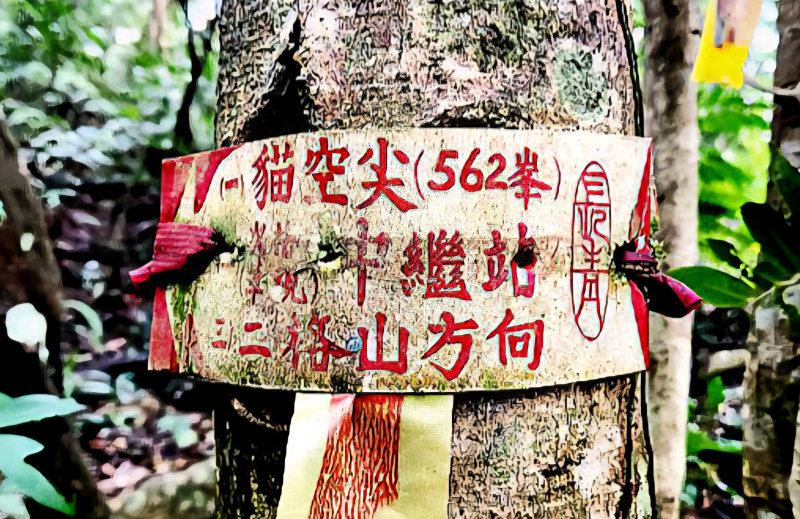 (一)貓空尖(562峯)
中繼站
三二格山方向